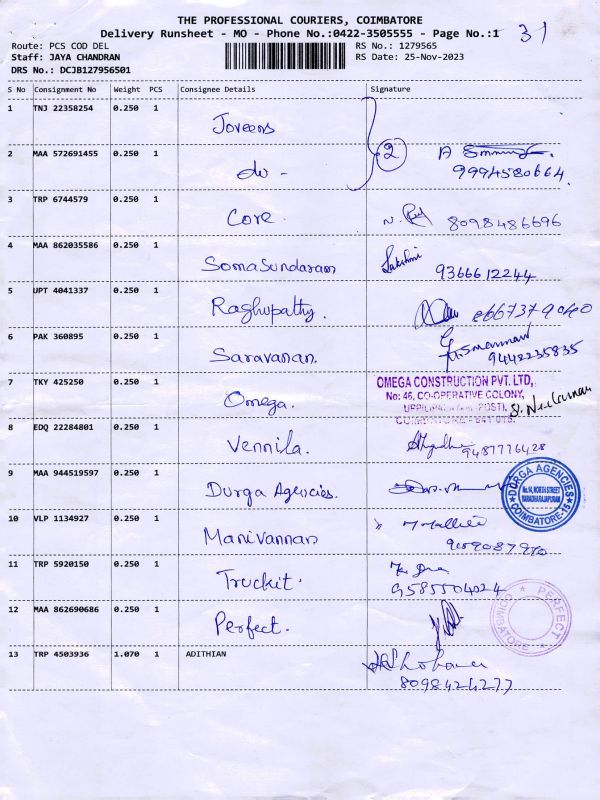 THE PROFESSIONAL COURIERS, COIMBATORE
Delivery Runsheet - MO - Phone No.:0422-3505555 - Page No.:1 31
Route: PCS COD DEL
Staff: JAYA CHANDRAN
DRS No.: DCJB127956501
RS No.: 1279565
RS Date: 25-Nov-2023
S No Consignment No Weight PCS Consignee Details Signature
1 TNJ 22358254 0.250 1 Joveens
2 MAA 572691455 0.250 1 do - 2
9994580664
3 TRP 6744579 0.250 1 Core. 8098486696
4 MAA 862035586 0.250 1 Somasundaram Lakshmi
9366612244
5 UPT 4041337 0.250 1 Raghupathy.
6 PAK 360895 0.250 1 Saravanan.
9442235835
7 TKY 425250 0.250 1 Omega. OMEGA CONSTRUCTION PVT. LTD,
No: 46, CO-OPERATIVE COLONY,
COIMBATORE - 641 015.
8 EDQ 22284801 0.250 1 Vennila. 9487776428
9 MAA 944519597 0.250 1 Durga Agencies. DURGA AGENCIES
COIMBATORE-15
No.14, NORTH STREET
VARADHARAJAPURAM
10 VLP 1134927 0.250 1 Manivannan
11 TRP 5920150 0.250 1 Truckit.
9585504024
12 MAA 862690686 0.250 1 Perfect. PERFECT
COIMBATORE
13 TRP 4503936 1.070 1 ADITHIAN
8098424277